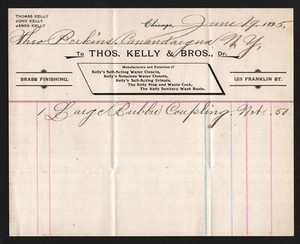 THOMAS KELLY
JOHN KELLY
JAMES KELLY
Chicago, June 14, 1895,
Theo Perkins, Canandaigua, N.Y.
To THOS. KELLY & BROS., Dr.
BRASS FINISHING.
Manufacturers and Patentees of
Kelly's Self-Acting Water Closets,
Kelly's Noiseless Water Closets,
Kelly's Self-Acting Urinals,
The Kelly Stop and Waste Cock,
The Kelly Sanitary Wash Basin.
123 FRANKLIN ST.
1 Large Rubber Coupling, Net. 50